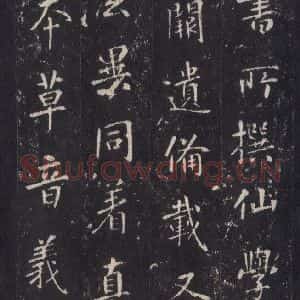 書所撰仙學
闕遺備載又
法異同着直
本草音義
Shufawang.CN